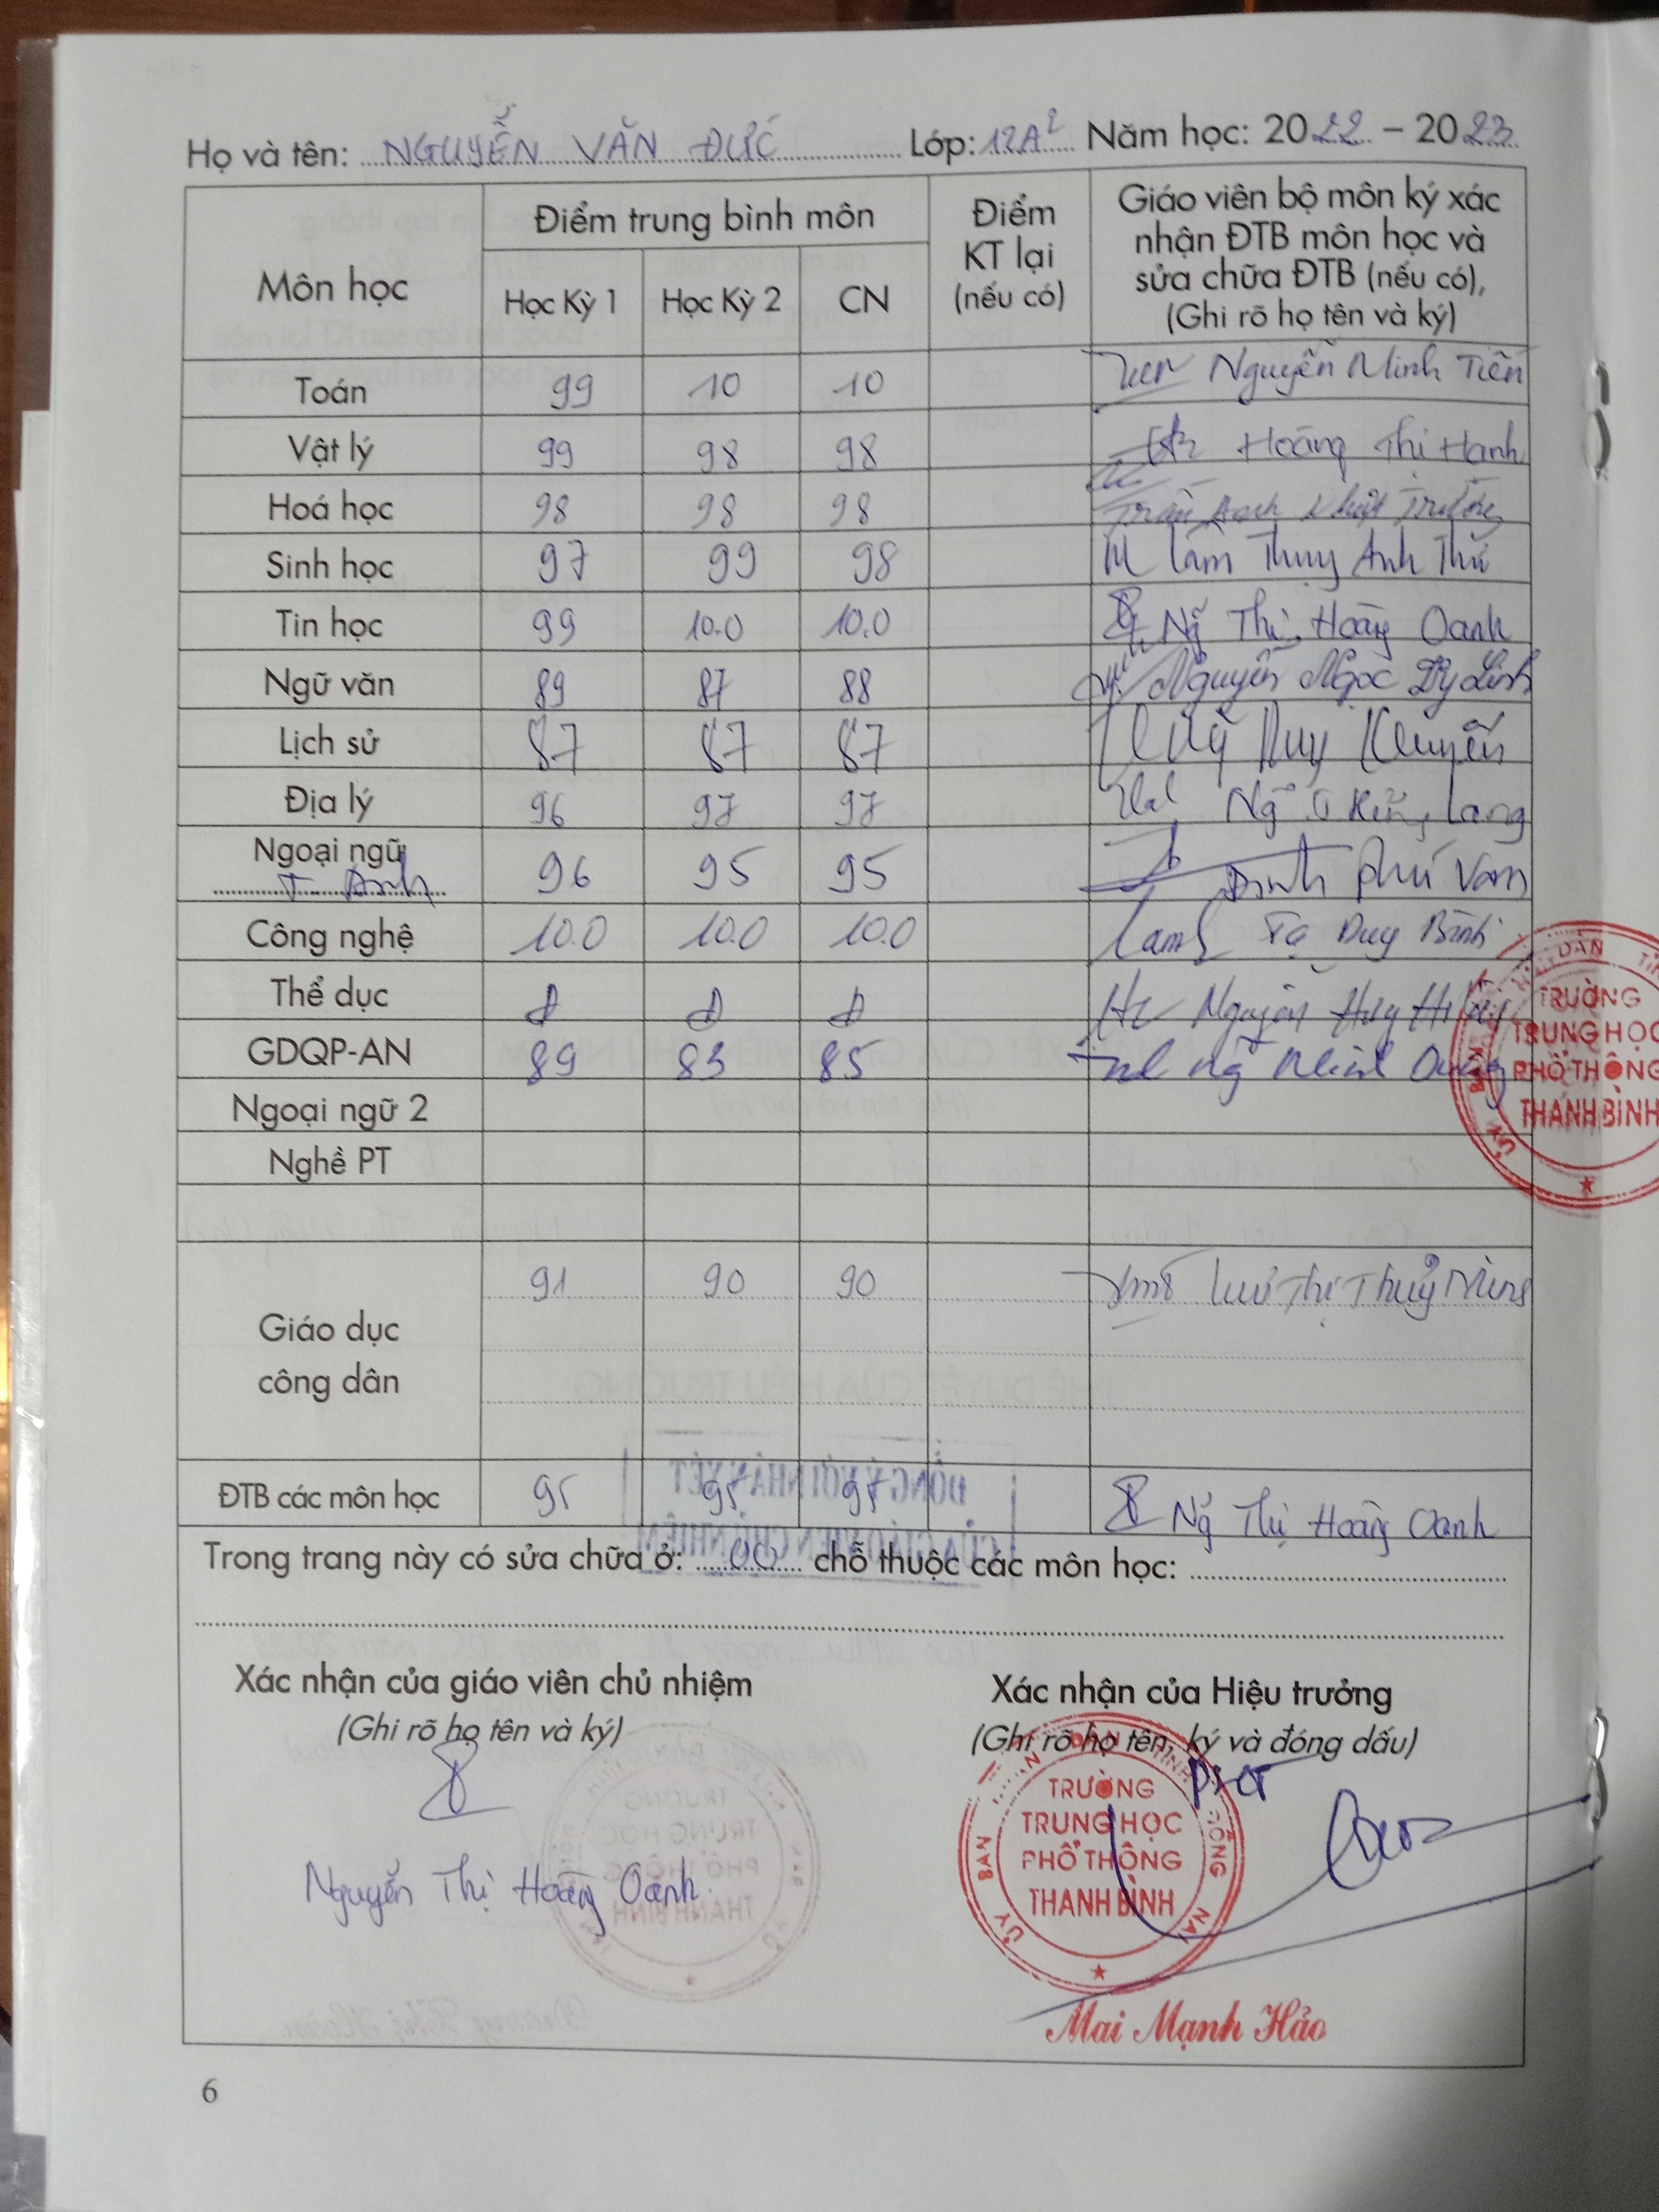 Họ và tên: NGUYỄN VĂN ĐỨC Lớp: 12A2 Năm học: 2022 – 2023
Môn học Điểm trung bình môn Điểm KT lại (nếu có) Giáo viên bộ môn ký xác nhận ĐTB môn học và sửa chữa ĐTB (nếu có), (Ghi rõ họ tên và ký)
Học Kỳ 1 Học Kỳ 2 CN
Toán 99 10 10 Nguyễn Minh Tiến
Vật lý 99 98 98 Hoàng Thị Hạnh
Hoá học 98 98 98 Trần
Sinh học 97 99 98 Lâm Thụy Anh Thư
Tin học 99 10.0 10.0 Ng̃ Thị Hoàng Oanh
Ngữ văn 89 87 88 Nguyễn Ngọc Linh
Lịch sử 87 87 87 Duy
Địa lý 96 97 97
Ngoại ngữ T. Anh 96 95 95 Đinh Phú Vam
Công nghệ 10.0 10.0 10.0 Tạ Duy Bình
Thể dục Đ Đ Đ Nguyễn Huy
GDQP-AN 89 83 85
Ngoại ngữ 2
Nghề PT
Giáo dục công dân 91 90 90 Lưu Thị Thuỷ
ĐTB các môn học 95 95 95 Ng̃ Thị Hoàng Oanh
Trong trang này có sửa chữa ở: 00 chỗ thuộc các môn học:
Xác nhận của giáo viên chủ nhiệm
(Ghi rõ họ tên và ký)
Nguyễn Thị Hoàng Oanh
Xác nhận của Hiệu trưởng
(Ghi rõ họ tên, ký và đóng dấu)
PHT
TRƯỜNG
TRUNG HỌC
PHỔ THÔNG
THANH BÌNH
Mai Mạnh Hảo
TRƯỜNG
TRUNG HỌC
PHỔ THÔNG
THANH BÌNH
6